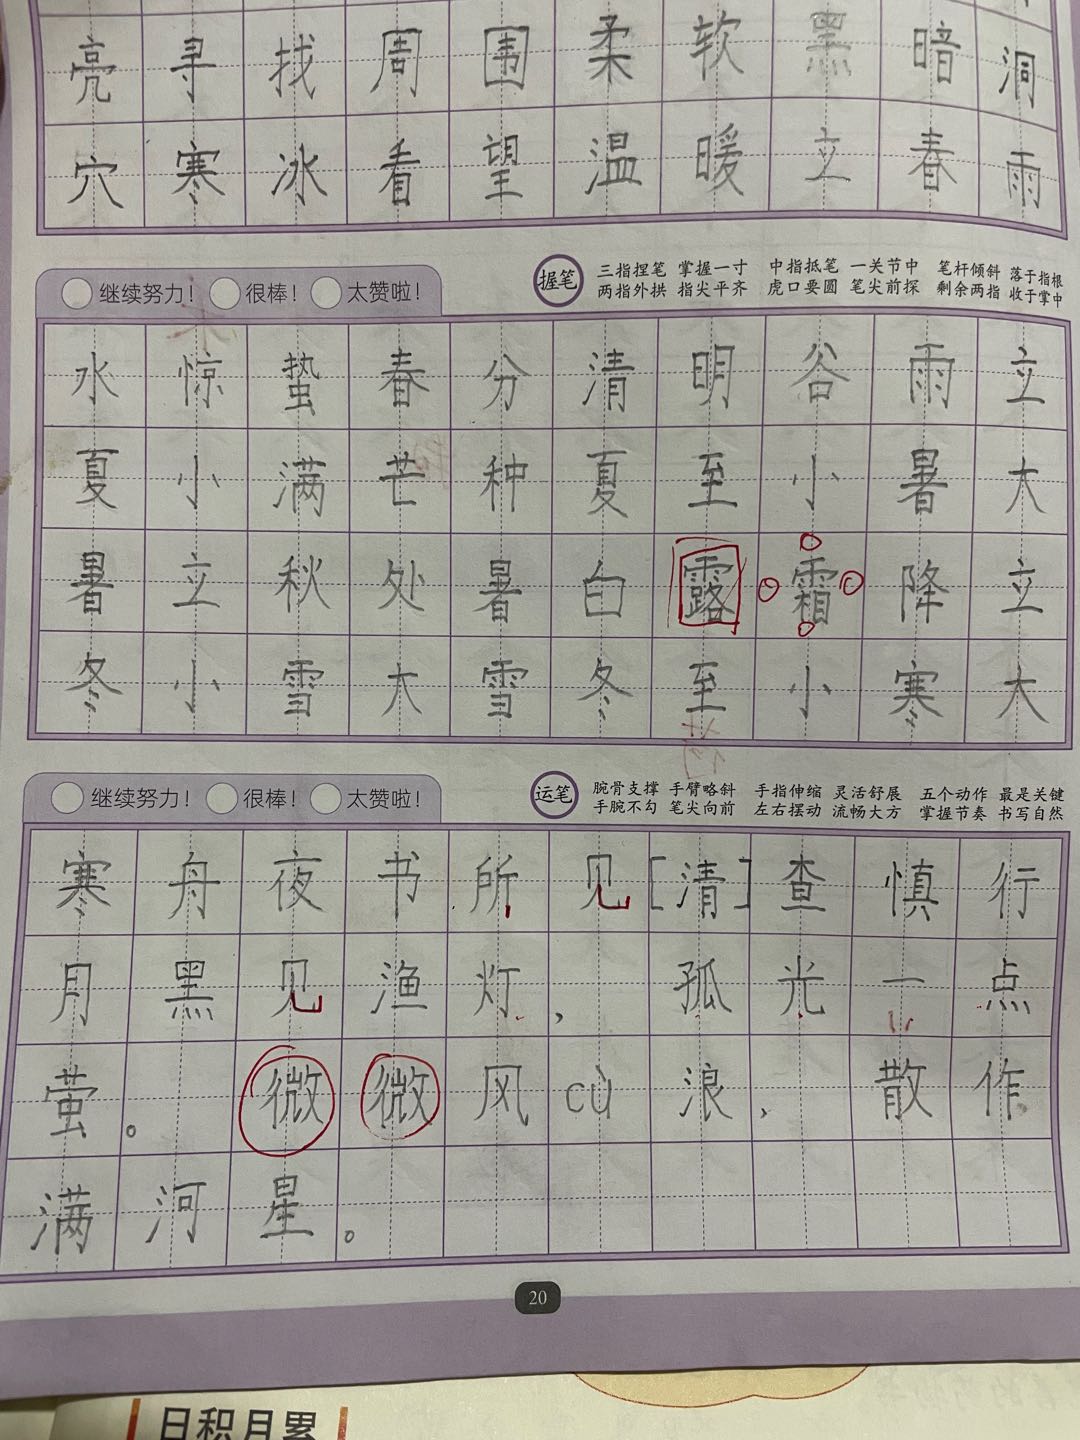 亮寻找周围柔软黑暗洞
穴寒冰看望温暖立春雨
继续努力！ 很棒！ 太赞啦！
握笔 三指捏笔 掌握一寸 中指抵笔 一关节中 笔杆倾斜 落于指根
两指外拱 指尖平齐 虎口要圆 笔尖前探 剩余两指 收于掌中
水惊蛰春分清明谷雨立
夏小满芒种夏至小暑大
暑立秋处暑白露霜降立
冬小雪大雪冬至小寒大
继续努力！ 很棒！ 太赞啦！
运笔 腕骨支撑 手臂略斜 手指伸缩 灵活舒展 五个动作 最是关键
手腕不勾 笔尖向前 左右摆动 流畅大方 掌握节奏 书写自然
寒舟夜书所见[清]查慎行
月黑见渔灯，孤光一点
萤。微微风cù浪，散作
满河星。
20
日积月累